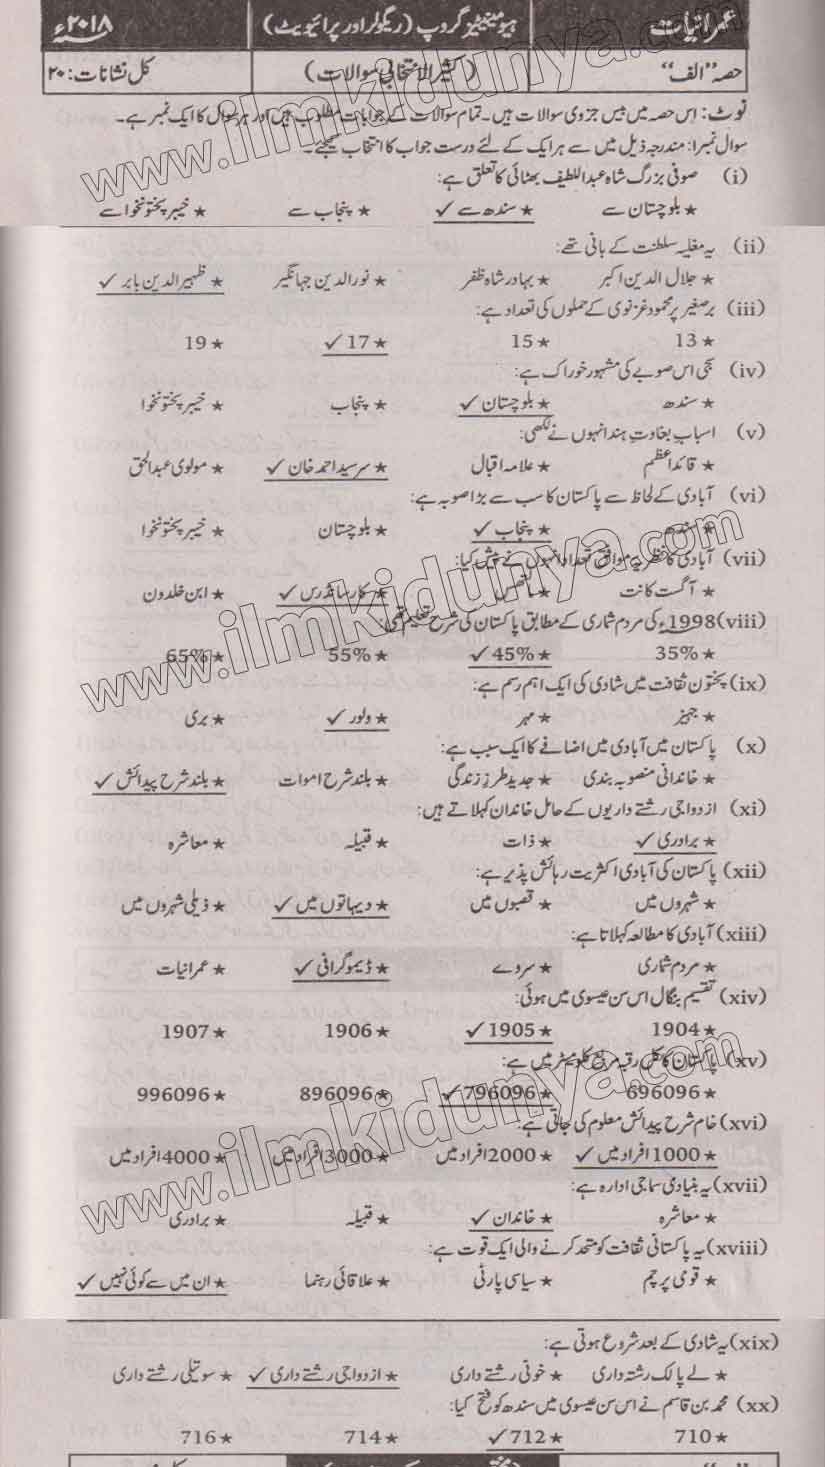 عمرانیات ہیومینیٹیز گروپ (ریگولر اور پرائیویٹ) ۲۰۱۸ء
حصہ "الف" (کثیر الانتخابی سوالات) کل نشانات: ۲۰
نوٹ: اِس حصہ میں بیس جزوی سوالات ہیں۔ تمام سوالات کے جوابات مطلوب ہیں اور ہر سوال کا ایک نمبر ہے۔
سوال نمبر۱: مندرجہ ذیل میں سے ہر ایک کے لئے درست جواب کا انتخاب کیجئے۔
(i) صوفی بزرگ شاہ عبداللطیف بھٹائی کا تعلق ہے:
★ بلوچستان سے ★ سندھ سے ✓ ★ پنجاب سے ★ خیبر پختونخوا سے
(ii) یہ مغلیہ سلطنت کے بانی تھے:
★ جلال الدین اکبر ★ بہادر شاہ ظفر ★ نور الدین جہانگیر ★ ظہیر الدین بابر ✓
(iii) برصغیر پر محمود غزنوی کے حملوں کی تعداد ہے:
★ 13 ★ 15 ★ 17 ✓ ★ 19
(iv) سجی اس صوبے کی مشہور خوراک ہے:
★ سندھ ★ بلوچستان ✓ ★ پنجاب ★ خیبر پختونخوا
(v) اسبابِ بغاوتِ ہند انہوں نے لکھی:
★ قائد اعظم ★ علامہ اقبال ★ سر سید احمد خان ✓ ★ مولوی عبدالحق
(vi) آبادی کے لحاظ سے پاکستان کا سب سے بڑا صوبہ ہے:
★ سندھ ★ پنجاب ✓ ★ بلوچستان ★ خیبر پختونخوا
(vii) آبادی کا نظریہ موافق تعداد انہوں نے پیش کیا:
★ آگست کانت ★ مالتھس ★ کارسانڈرس ✓ ★ ابن خلدون
(viii) 1998ء کی مردم شماری کے مطابق پاکستان کی شرح تعلیم تھی:
★ 35% ★ 45% ✓ ★ 55% ★ 65%
(ix) پختون ثقافت میں شادی کی ایک اہم رسم ہے:
★ جہیز ★ مہر ★ ولور ✓ ★ بری
(x) پاکستان میں آبادی میں اضافے کا ایک سبب ہے:
★ خاندانی منصوبہ بندی ★ جدید طرزِ زندگی ★ بلند شرح اموات ★ بلند شرح پیدائش ✓
(xi) ازدواجی رشتے داریوں کے حامل خاندان کہلاتے ہیں:
★ برادری ✓ ★ ذات ★ قبیلہ ★ معاشرہ
(xii) پاکستان کی آبادی اکثریت رہائش پذیر ہے:
★ شہروں میں ★ قصبوں میں ★ دیہاتوں میں ✓ ★ ذیلی شہروں میں
(xiii) آبادی کا مطالعہ کہلاتا ہے:
★ مردم شماری ★ سروے ★ ڈیموگرافی ✓ ★ عمرانیات
(xiv) تقسیم بنگال اس سن عیسوی میں ہوئی:
★ 1904 ★ 1905 ✓ ★ 1906 ★ 1907
(xv) پاکستان کا کل رقبہ مربع کلومیٹر میں ہے:
★ 696096 ★ 796096 ✓ ★ 896096 ★ 996096
(xvi) خام شرح پیدائش معلوم کی جاتی ہے:
★ 1000 افراد میں ✓ ★ 2000 افراد میں ★ 3000 افراد میں ★ 4000 افراد میں
(xvii) یہ بنیادی سماجی ادارہ ہے:
★ معاشرہ ★ خاندان ✓ ★ قبیلہ ★ برادری
(xviii) یہ پاکستانی ثقافت کو متحد کرنے والی ایک قوت ہے:
★ قومی پرچم ★ سیاسی پارٹی ★ علاقائی رہنما ★ ان میں سے کوئی نہیں ✓
(xix) یہ شادی کے بعد شروع ہوتی ہے:
★ لے پالک رشتہ داری ★ خونی رشتے داری ★ ازدواجی رشتے داری ✓ ★ سوتیلی رشتے داری
(xx) محمد بن قاسم نے اس سن عیسوی میں سندھ کو فتح کیا:
★ 710 ★ 712 ✓ ★ 714 ★ 716
www.ilmkidunya.com
www.ilmkidunya.com
www.ilmkidunya.com